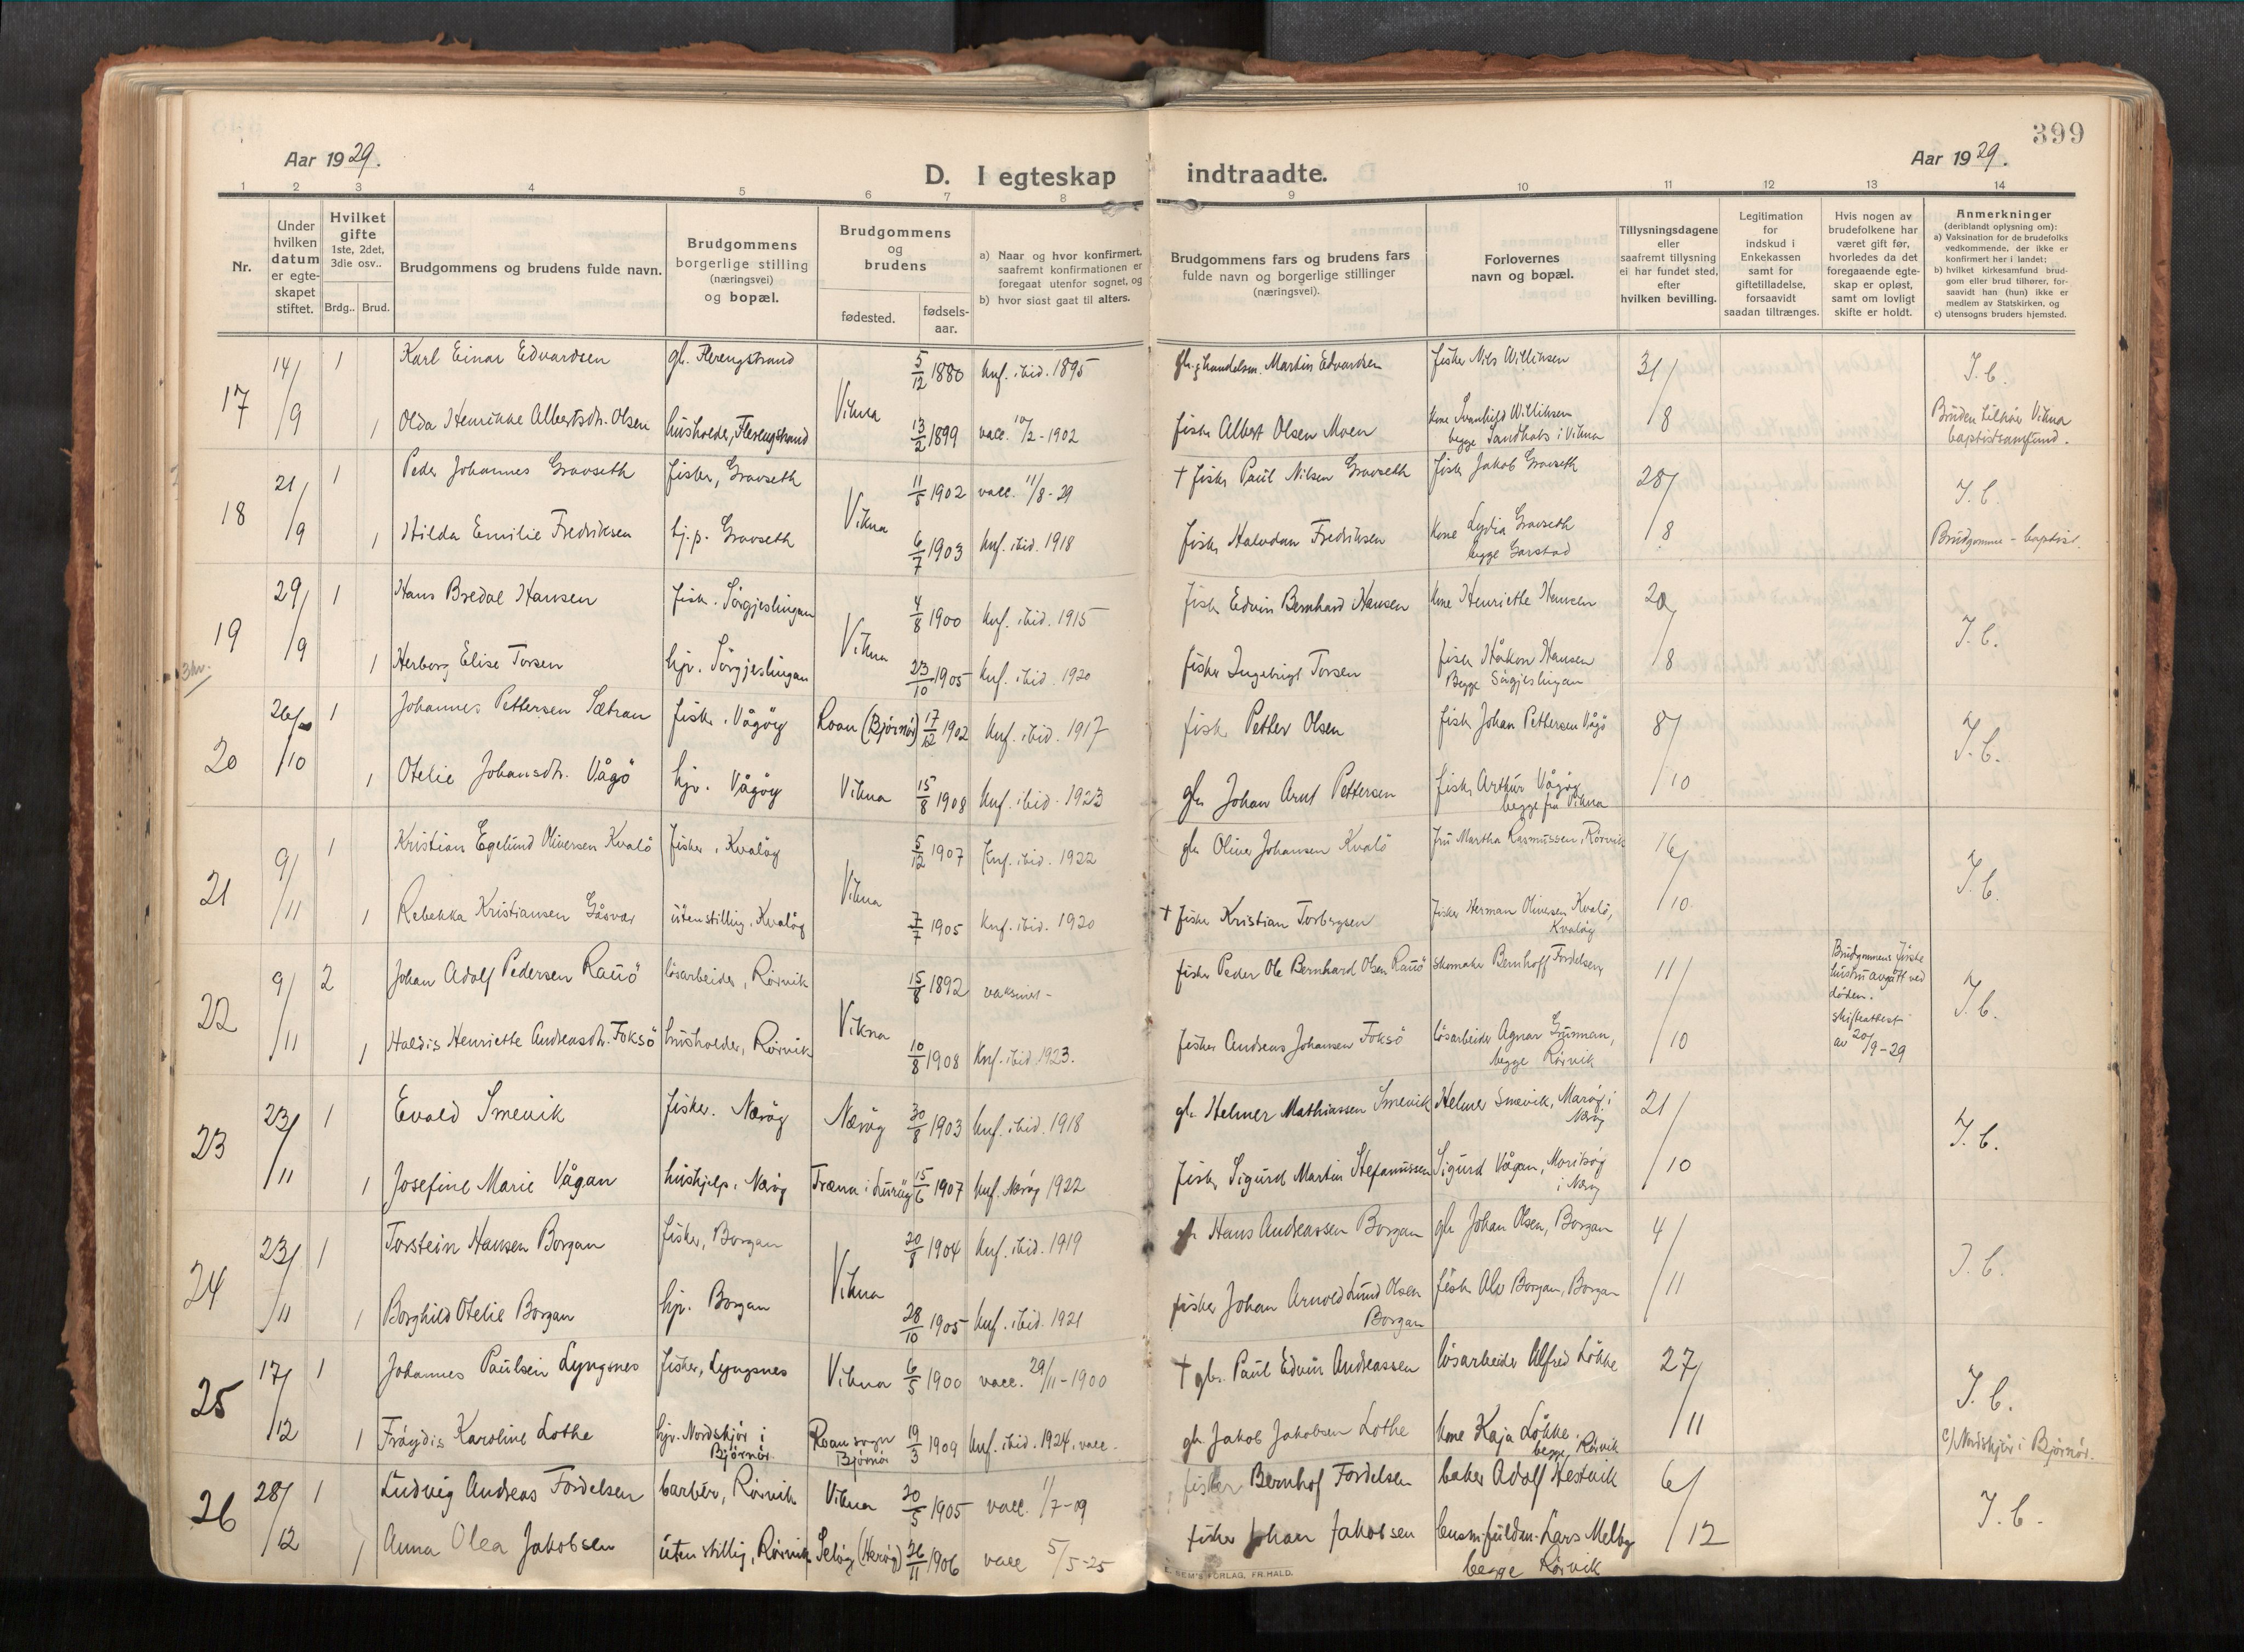 399
Aar 1929.
Aar 1929.
D. I egteskap indtraadte.
1 2 3 4 5 6 7 8 9 10 11 12 13 14
Nr.
Under hvilken datum er egte-skapet stiftet.
Hvilket gifte
1ste, 2det, 3die osv..
Brdg.. Brud.
Brudgommens og brudens fulde navn.
Brudgommens borgerlige stilling (næringsvei) og bopæl.
Brudgommens og brudens
fødested.
fødsels-aar.
a) Naar og hvor konfirmert, saafremt konfirmationen er foregaat utenfor sognet, og
b) hvor sidst gaat til alters.
Brudgommens fars og brudens fars fulde navn og borgerlige stillinger (næringsvei).
Forlovernes navn og bopæl.
Tillysningsdagene eller saafremt tillysning ei har fundet sted, efter hvilken bevilling.
Legitimation for indskud i Enkekassen samt for giftetilladelse, forsaavidt saadan tiltrænges.
Hvis nogen av brudefolkene har været gift før, hvorledes da det foregaaende egte-skap er opløst, samt om lovligt skifte er holdt.
Anmerkninger
(deriblandt oplysning om):
a) Vaksination for de brudefolks vedkommende, der ikke er konfirmert her i landet;
b) hvilket kirkesamfund brud-gom eller brud tilhører, for-saavidt han (hun) ikke er medlem av Statskirken, og
c) utensogns bruders hjemsted.
17 14/9 1 Karl Einar Edvardsen gb. Flerengstrand Vikna 5/12 1880 Knf. ibid. 1895 handelsm. Martin Edvardsen fisker Nils Willisen 31/8 I. b.
1 Olda Henrikke Albertsdtr. Olsen husholder, Flerengstrand 13/2 1899 vacc. 10/2-1902 fisker Albert Olsen Moen kone Svanhild Willisen begge Sandhals i Vikna Bruden tilhører Vikna baptistsamfund.
18 21/9 1 Peder Johannes Gravseth fisker, Gravseth Vikna 11/5 1902 vacc. 11/8-29 † fisker Paul Nilsen Gravseth fisker Jakob Gravseth 28/8 I. b.
1 Hilda Emilie Fredriksen hj.p. Gravseth 6/7 1903 Knf. ibid. 1918 fisker Halvdan Fredriksen kone Lydia Gravseth begge Garstad Brudgommen - baptist.
19 29/9 1 Hans Bredal Hansen fisk. Sørgjeslingan Vikna 4/8 1900 Knf. ibid. 1915 fisk. Edvin Bernhard Hansen kone Henriette Hansen 20/8 I. b.
1 Herborg Elise Torsen hjv. Sørgjeslingan 23/10 1905 Knf. ibid. 1920 fisker Ingebrigt Torsen fisker Håkon Hansen Begge Sørgjeslingan
20 26/10 1 Johannes Pettersen Sætran fisk. Vågøy Roan (Bjørnør) 17/12 1902 Knf. ibid. 1917 fisk. Petter Olsen fisk. Johan Pettersen Vågø 8/10 I. b.
1 Otelie Johansdtr. Vågø hjv. Vågøy Vikna 15/8 1908 Knf. ibid. 1923 gbr. Johan Arnt Pettersen fisk. Arthur Vågøy begge fra Vikna
21 9/11 1 Kristian Egelund Oliversen Kvalö fisker, Kvaløy Vikna 5/12 1907 Knf. ibid. 1922 gbr. Oliver Johansen Kvalö Fru Martha Rasmussen, Rörvik 16/10 I. b.
1 Rebekka Kristiansen Gåsvær uten stilling, Kvaløy 7/7 1905 Knf. ibid. 1920 † fisker Kristian Torbergsen fisker Herman Oliversen Kvalö, Kvaløy
22 9/11 2 Johan Adolf Pedersen Rauö løsarbeider, Rørvik Vikna 15/8 1892 vaksinert - fisker Peder Ole Bernhard Olsen Rauö skomaker Bernhoff Fordelsen, 11/10 Brudgommens første hustru avgått ved döden. Skifteattest av 20/9-29 I. b.
1 Haldis Henriette Andreasdtr. Foksö husholder, Rørvik 10/8 1908 Knf. ibid. 1923. fisker Andreas Johansen Foksö løsarbeider Agnar Gunman, begge Rørvik
23 23/11 1 Evald Smevik fisker. Nærøy Nærøy 30/8 1903 Knf. ibid. 1918 gbr. Helmer Mathiassen Smevik Helmer Smevik, Marøy i Nærøy 21/10 I. b.
1 Josefine Marie Vågan hushjelp, Nærøy Træna i Lurøy 15/6 1907 Knf. Nærøy 1922 fisk. Sigurd Martin Stefanussen Sigurd Vågan, i Nærøy
24 23/11 1 Torstein Hansen Borgan fisker, Borgan Vikna 20/8 1904 Knf. ibid. 1919 gbr. Hans Andreassen Borgan gbr. Johan Olsen, Borgan 4/11 I. b.
1 Borghild Otelie Borgan hjv. Borgan 28/10 1905 Knf. ibid. 1921 fisker Johan Arnold Lund Olsen Borgan fisk. Alv Borgan, Borgan
25 17/12 1 Johannes Paulsen Lyngsnes fisker, Lyngsnes Vikna 6/5 1900 vacc. 29/11-1900 † gbr. Paul Edvin Andreassen løsarbeider Alfred Løkke 27/11 I. b.
1 Frøydis Karoline Lothe hjv. Nordskjør i Bjørnør Roan sogn Bjørnør 19/3 1909 Knf. ibid. 1924, vacc. gbr. Jakob Jakobsen Lothe kone Kaja Løkke, begge Rørvik c) Nordskjør i Bjørnør.
26 28/12 1 Ludvig Andreas Fordelsen barber, Rørvik Vikna 20/5 1905 vacc. 1/7-09 fisker Bernhof Fordelsen baker Adolf Hestvik 6/12 I. b.
1 Anna Olea Jakobsen uten stilling, Rørvik Seløy (Herøy) 26/11 1906 vacc 5/5-25 fisker Johan Jakobsen Lars Melby begge Rørvik
FORLAG, FR.HALD.